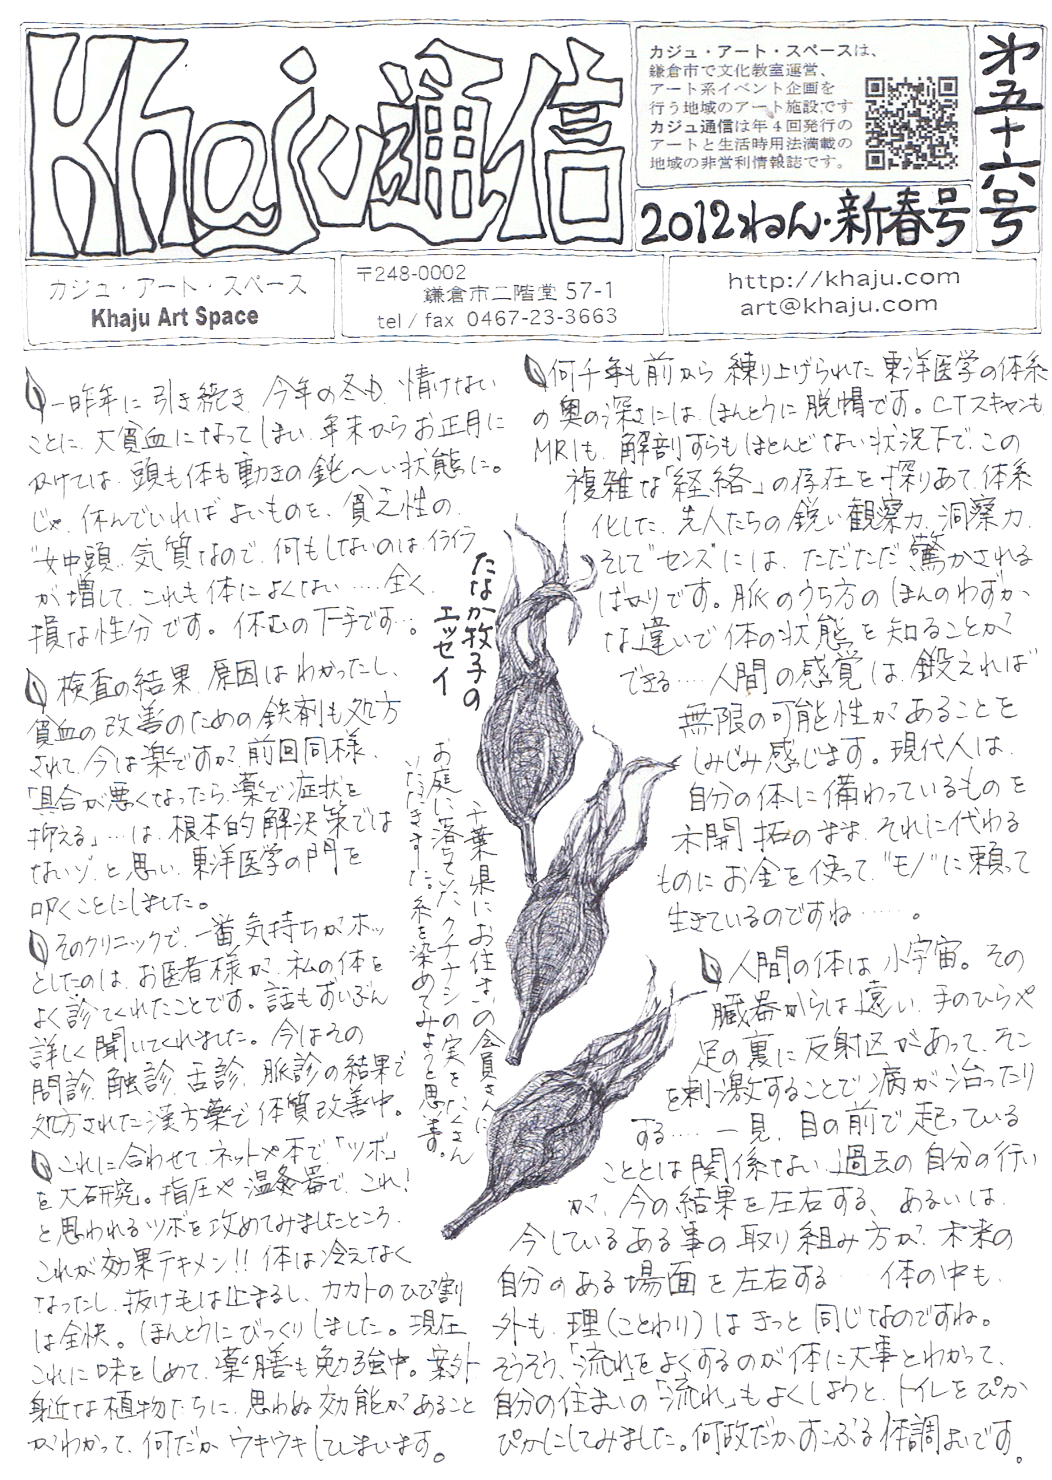 Khaju通信
カジュ・アート・スペースは、
鎌倉市で文化教室運営、
アート系イベント企画を
行う地域のアート施設です
カジュ通信は年4回発行の
アートと生活時用法満載の
地域の非営利情報誌です。
2012ねん・新春号
第五十六号
カジュ・アート・スペース
Khaju Art Space
〒248-0002
鎌倉市二階堂 57-1
tel / fax 0467-23-3663
http://khaju.com
art@khaju.com
たなか牧子の
エッセイ
一昨年に引き続き、今年の冬も、情けない
ことに、大貧血になってしまい、年末からお正月に
かけては、頭も体も動きの鈍〜い状態に。
じゃ、休んでいればよいものを、貧乏性の
"女中頭"気質なので、何もしないのは、イライラ
が増して、これも体によくない……全く、
損な性分です。休むの下手です…。
検査の結果、原因はわかったし、
貧血の改善のための鉄剤も処方
されて、今は楽ですが、前回同様、
「具合が悪くなったら、薬で症状を
抑える」…は、根本的解決策では
ないゾ、と思い、東洋医学の門を
叩くことにしました。
そのクリニックで、一番気持ちがホッ
としたのは、お医者様が、私の体を
よく診てくれたことです。話もずいぶん
詳しく聞いてくれました。今はその
問診、触診、舌診、脈診の結果で
処方された漢方薬で体質改善中。
これに合わせて、ネットや本で「ツボ」
を大研究。指圧や温灸器で、これ!
と思われるツボを攻めてみましたところ、
これが効果テキメン!!体は冷えなく
なったし、抜け毛は止まるし、カカトのひび割
は全快。ほんとうにびっくりしました。現在
これに味をしめて、薬膳も勉強中。案外
身近な植物たちに、思わぬ効能があること
がわかって、何だかウキウキしてしまいます。
千葉県にお住まいの会員さんに
お庭に落ちていたクチナシの実をたくさん
いただきました。糸を染めてみようと思います。
何千年も前から練り上げられた東洋医学の体系
の奥の深さには、ほんとうに脱帽です。CTスキャンも
MRIも、解剖すらもほとんどない状況下で、この
複雑な「経絡」の存在を探りあて、体系
化した、先人たちの鋭い観察力、洞察力、
そして"センス"には、ただただ驚かされる
ばかりです。脈のうち方のほんのわずか
な違いで体の状態を知ることが
できる……人間の感覚は、鍛えれば
無限の可能性があることを
しみじみ感じます。現代人は、
自分の体に備わっているものを
未開拓のまま、それに代わる
ものにお金を使って、"モノ"に頼って
生きているのですね……。
人間の体は小宇宙。その
臓器からは遠い、手のひらや
足の裏に反射区があって、そこ
を刺激することで病が治ったり
する……一見、目の前で起っている
こととは関係ない、過去の自分の行い
が、今の結果を左右する、あるいは、
今しているある事の取り組み方が、未来の
自分のある場面を左右する…体の中も、
外も、理(ことわり)はきっと同じなのですね。
そうそう、「流れをよくするのが体に大事とわかって、
自分の住まいの「流れ」もよくしようと、トイレをぴか
ぴかにしてみました。何故だか、すこぶる体調よいです。